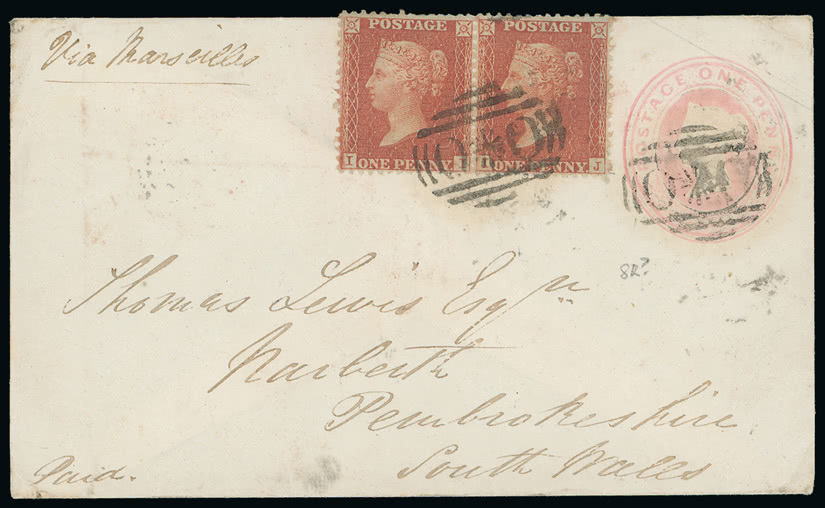 Via Marseilles
POSTAGE POSTAGE
I ONE PENNY. I I ONE PENNY. J
POSTAGE ONE PENNY
O*O
O*
8R?
Thomas Lewis Esqre
Narberth
Pembrokeshire
South Walls
Paid.